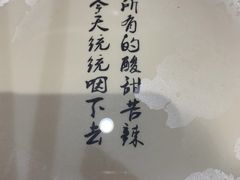 所有的酸甜苦辣
今天统统咽下去